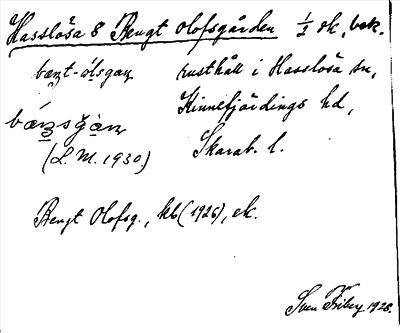 Hasslösa 8 Bengt Olofsgården 1/2 sk, bek.
bæŋt-ólsgaɳ rusthåll i Hasslösa sn,
Kinnefjärdings hd,
bæŋsgàɳ
(L. M. 1930.) Skarab. l.
Bengt Olofsg., kb (1926), ek.
Sven Friberg 1926.